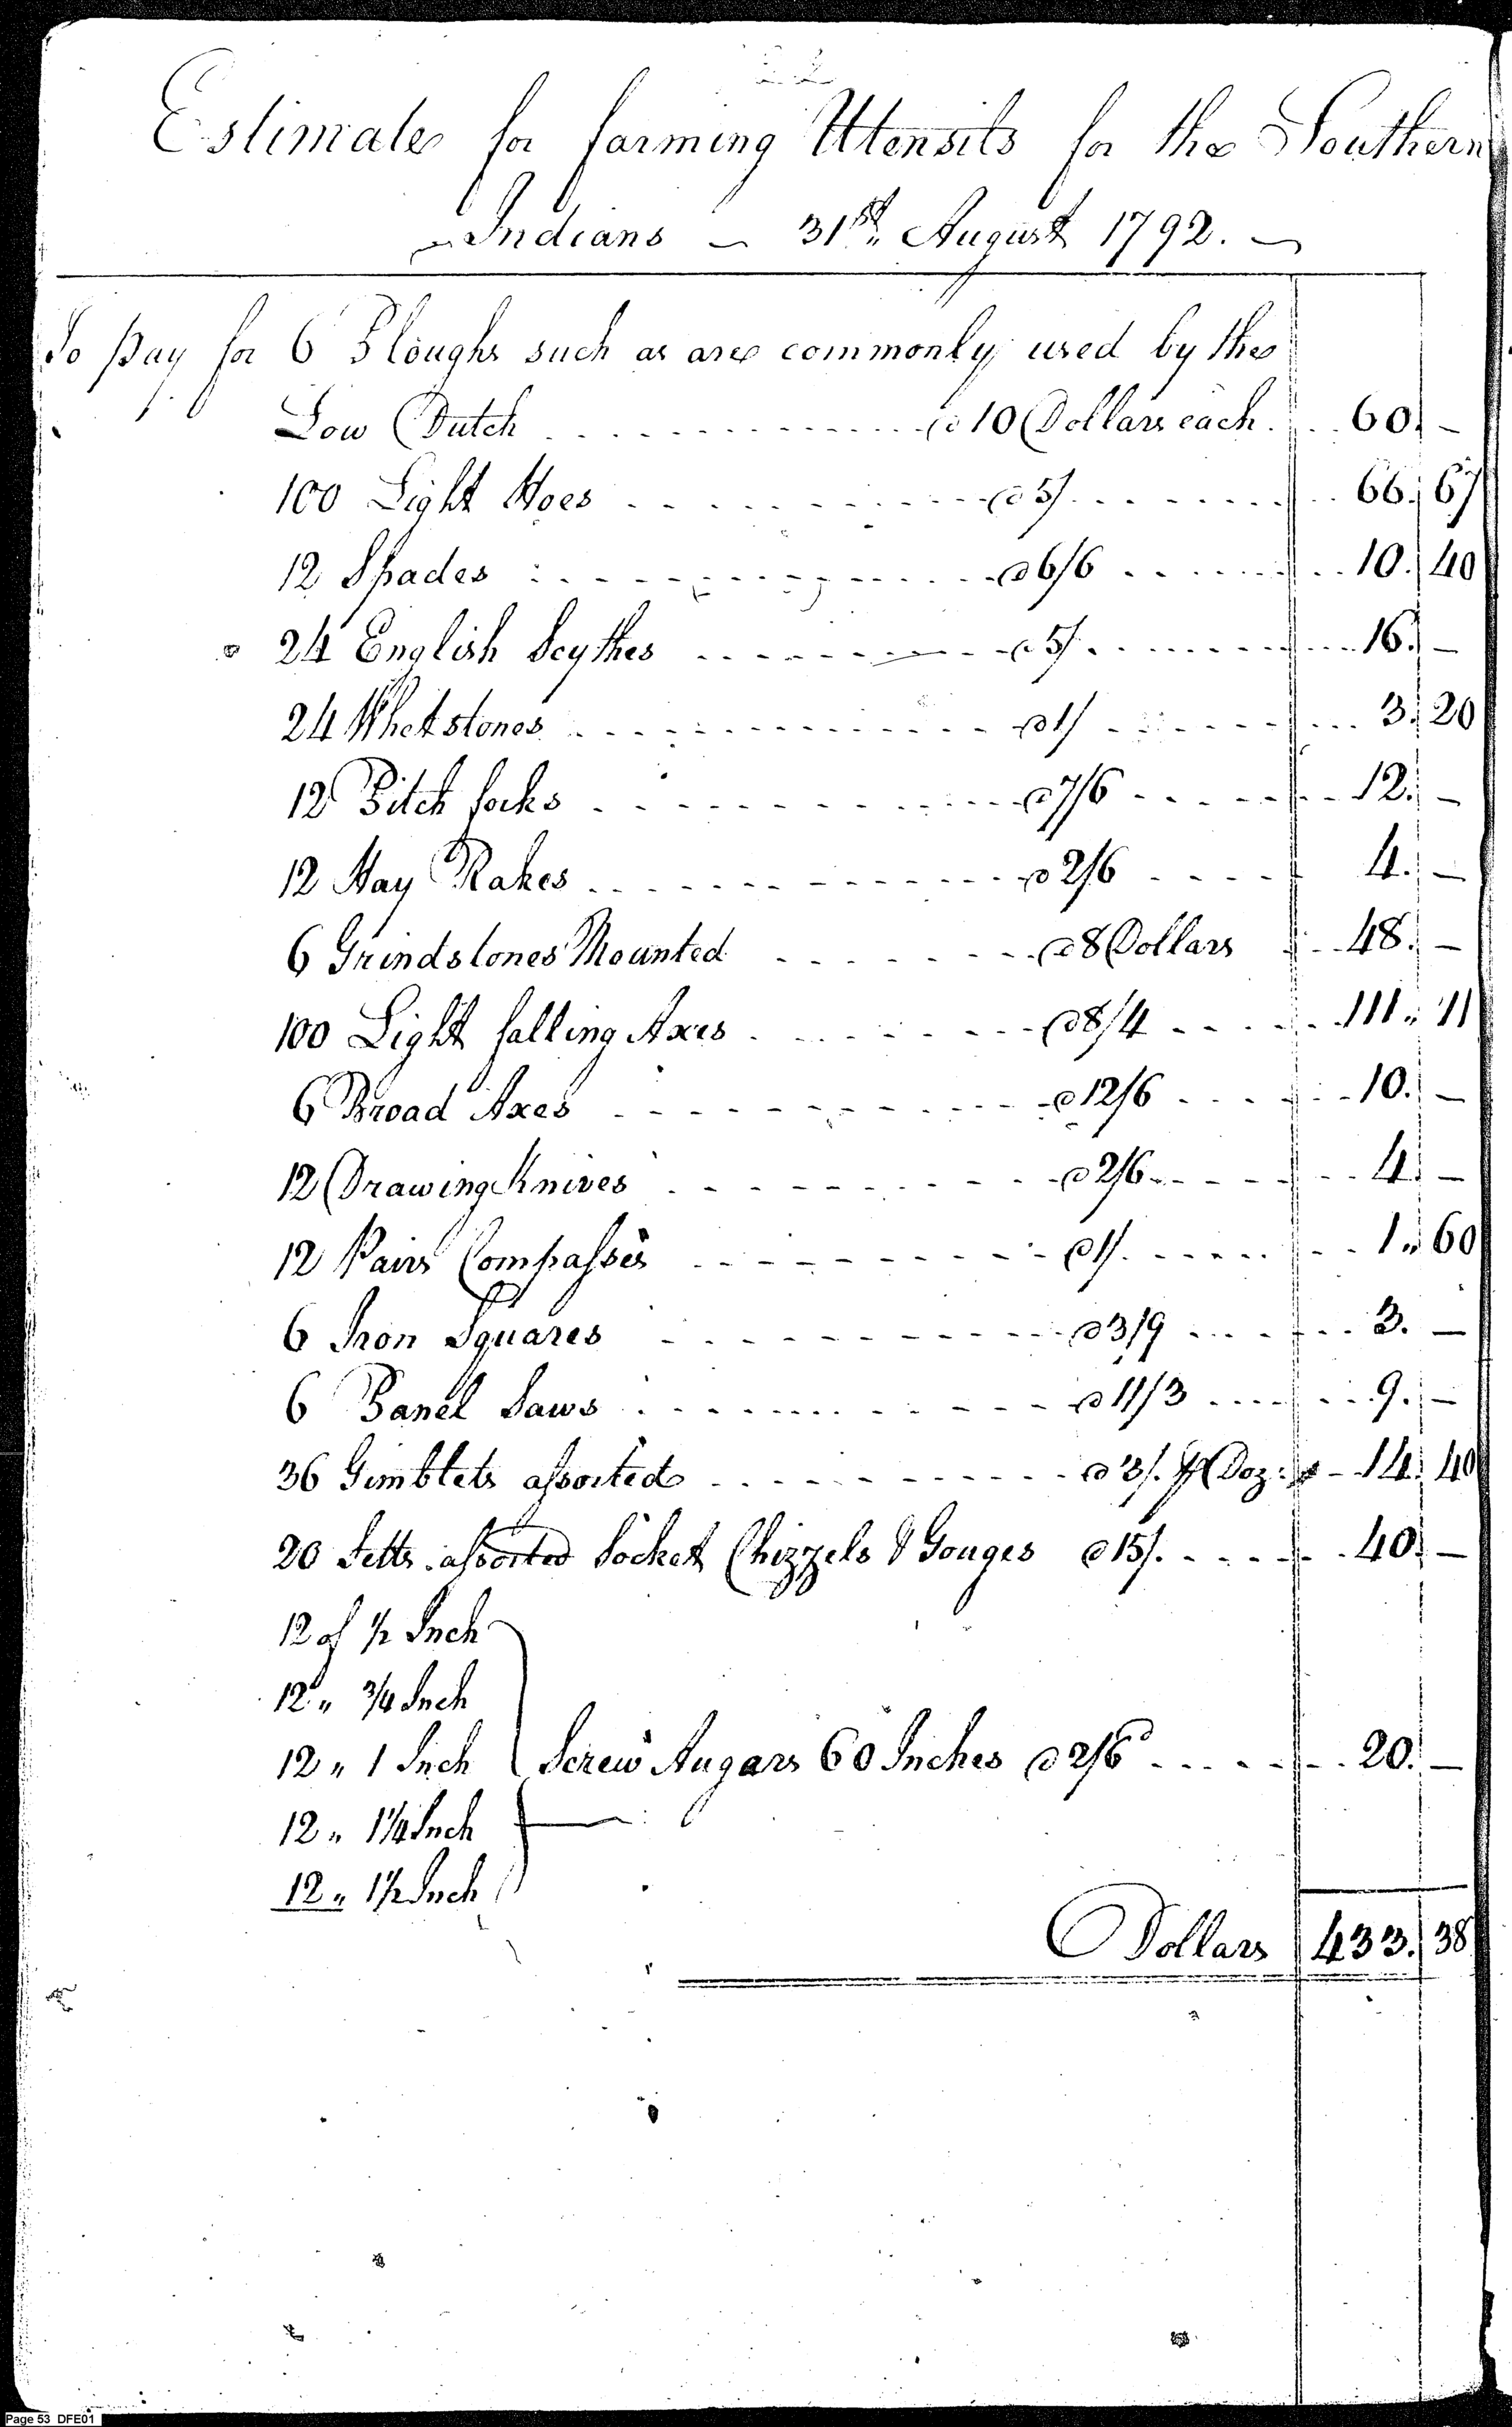 Estimate for farming Utensils for the Southern
Indians — 31st August 1792. —
To pay for 6 Ploughs such as are commonly used by the
Low Dutch @ 10 Dollars each. 60. —
100 Light Hoes @ 5/. 66. 67
12 Spades @ 6/6 10. 40
24 English Scythes @ 5/. 16. —
24 Whetstones @ 1/ 3. 20
12 Pitch forks @ 7/6 12. —
12 Hay Rakes @ 2/6 4. —
6 Grindstones Mounted @ 8 Dollars 48. —
100 Light falling Axes @ 8/4 111 " 11
6 Broad Axes @ 12/6 10. —
12 Drawing Knives @ 2/6 4. —
12 Pairs Compasses @ 1/. 1 " 60
6 Iron Squares @ 3/9 3. —
6 Panel Saws @ 11/3 9. —
36 Gimblets assorted @ 3/. ⅌ Doz: 14. 40
20 Setts assorted Socket Chizzels & Gouges @ 15/. 40. —
12 of 1/2 Inch
12 " 3/4 Inch
12 " 1 Inch Screw Augars 60 Inches @ 2/6 20. —
12 " 1 1/4 Inch
12 " 1 1/2 Inch
Dollars 433. 38
Page 53 DFE01